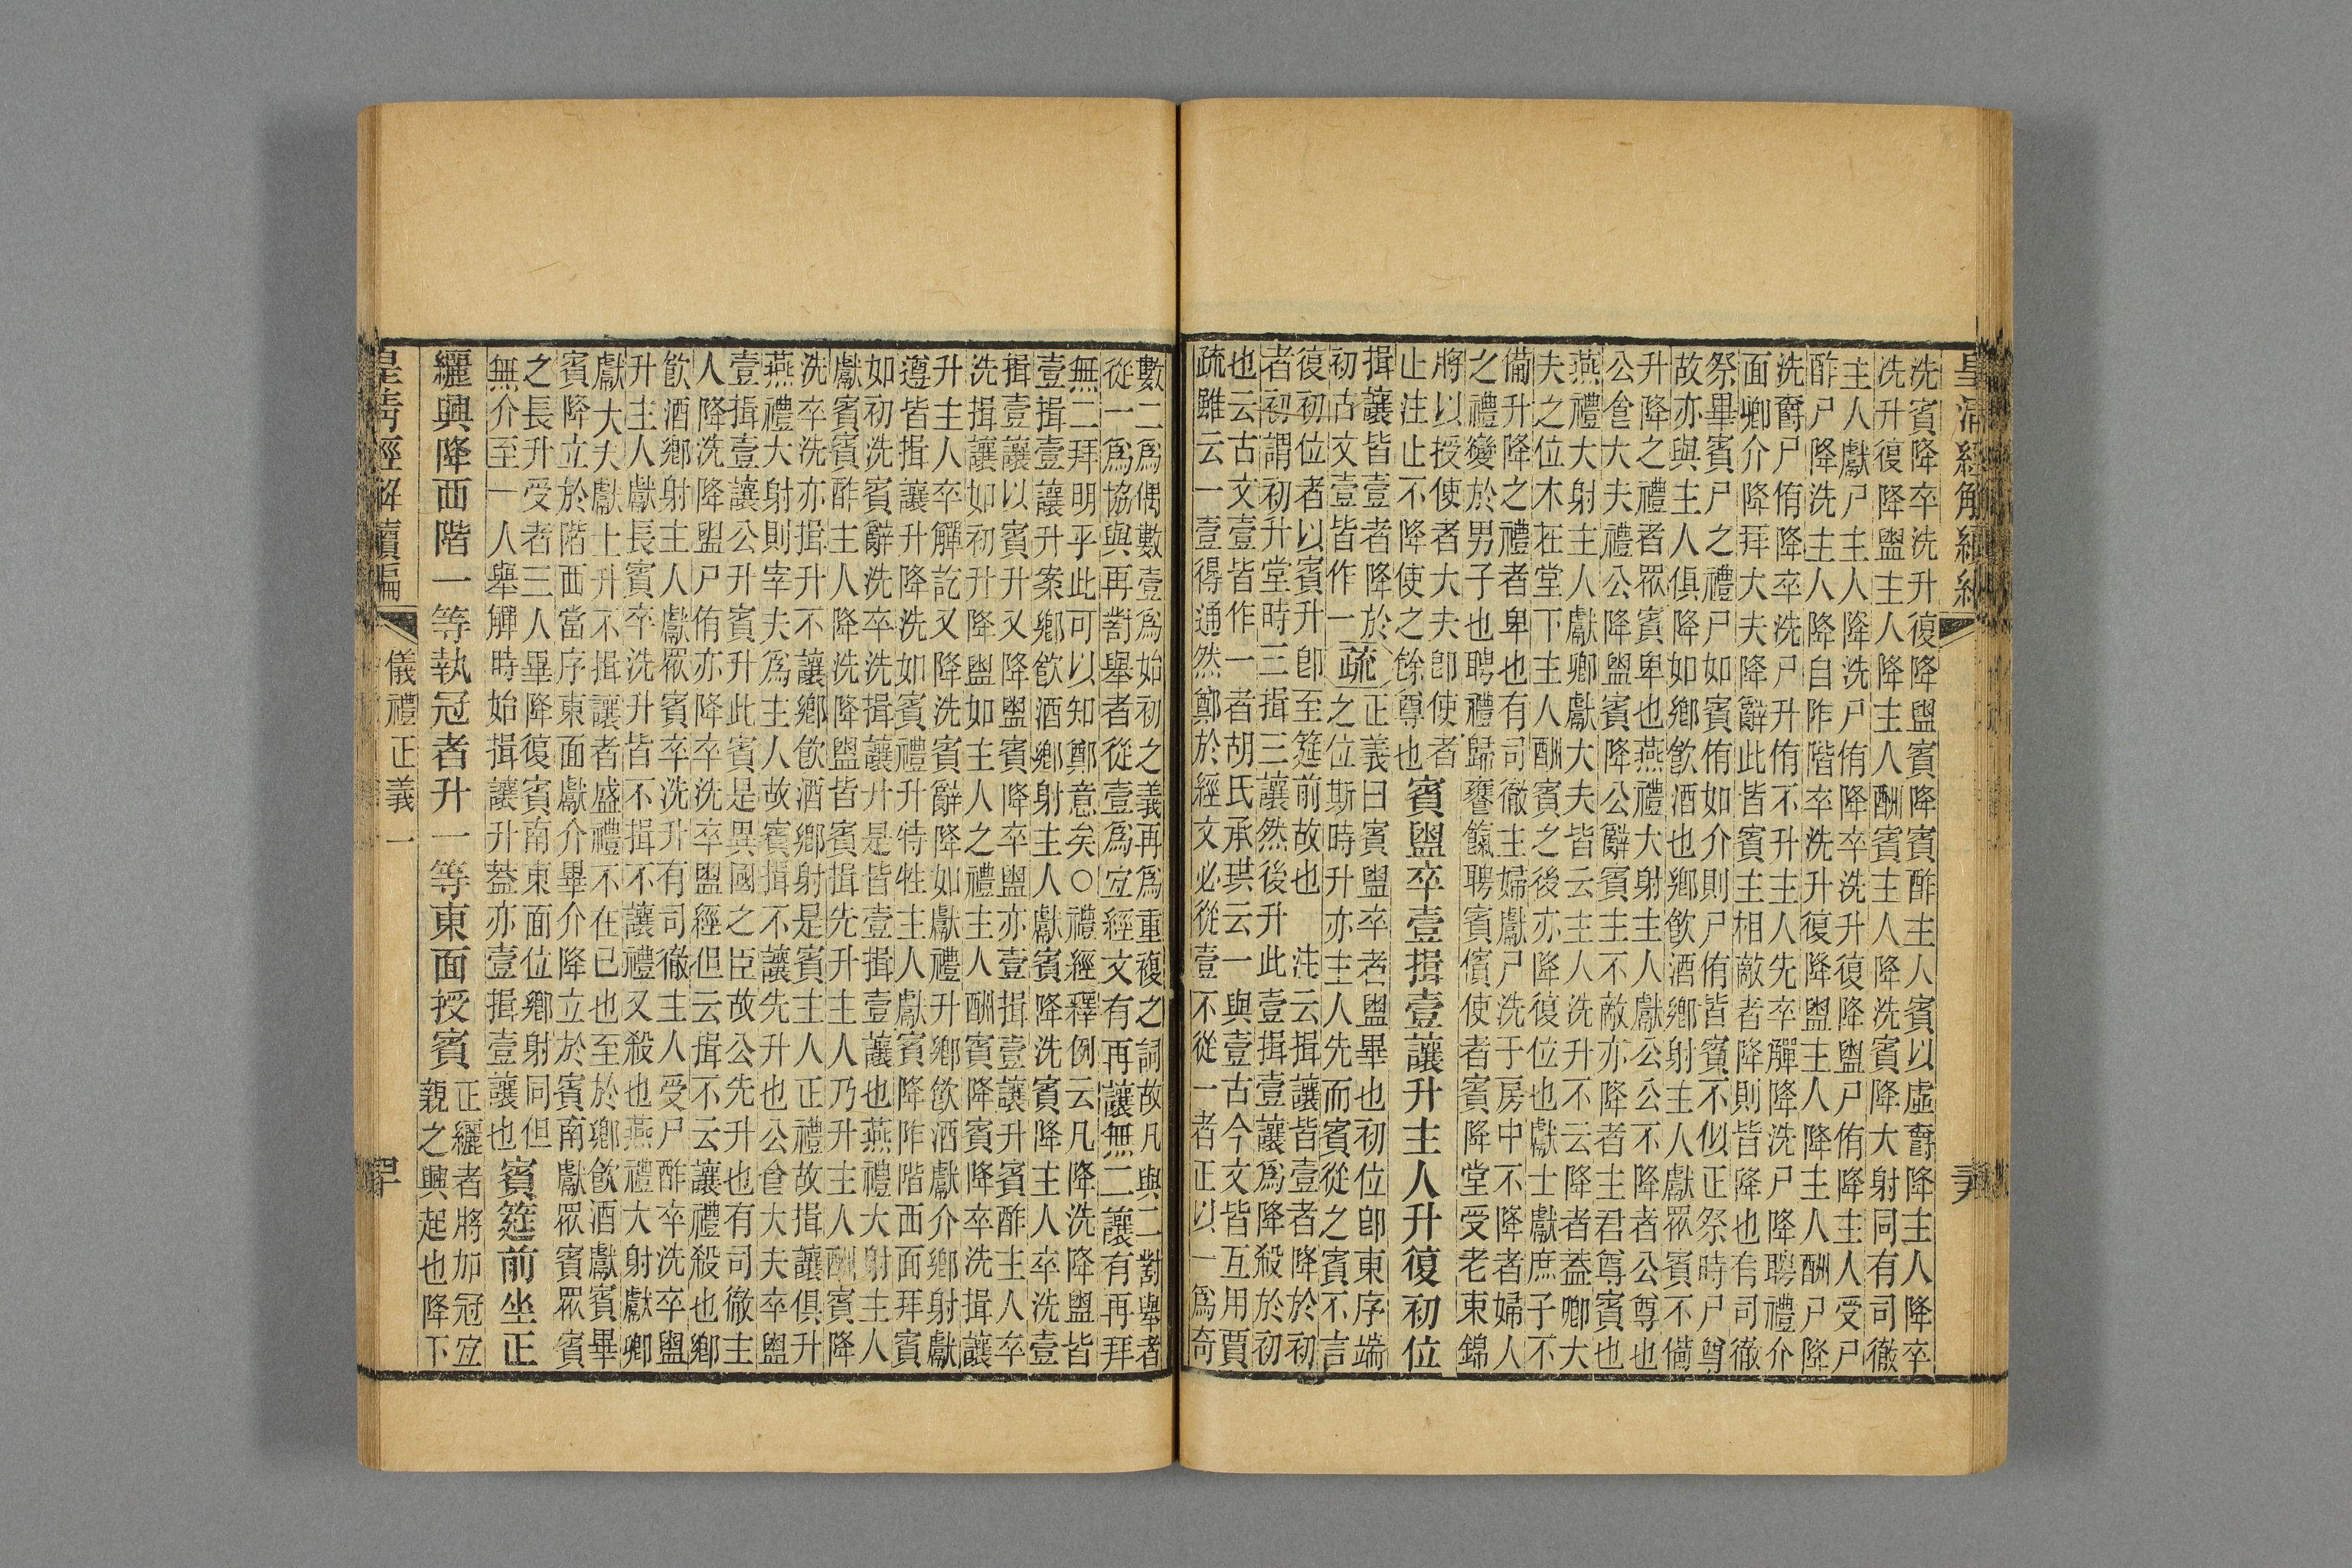 洗賓降卒洗升復降盥賓降賓酢主人賓以虛爵降主人降卒
洗升復降盥主人降主人酬賓主人降洗賓降大射同有司徹
主人獻尸主人降洗尸侑降卒洗升復降盥尸侑降主人受尸
酢尸降洗主人降自阼階卒洗升復降盥主人降主人酬尸降
洗爵尸侑降卒洗尸升侑不升主人先卒觶降洗尸降聘禮介
面卿介降拜大夫降辭此皆賓主相敵者降則皆降也有司徹
祭畢賓尸之禮尸如賓侑如介則尸侑皆賓不似正祭時尸尊
故亦與主人俱降如鄉飲酒也鄉飲酒鄉射主人獻眾賓不備
升降之禮者眾賓卑也燕禮大射主人獻公公不降者公尊也
公食大夫禮公降盥賓降公辭賓主不敵亦降者主君尊賓也
燕禮大射主人獻卿獻大夫皆云主人洗升不云降者蓋卿大
夫之位木在堂下主人酬賓之後亦降復位也獻士獻庶子不
備升降之禮者卑也有司徹主婦獻尸洗于房中不降者婦人
之禮變於男子也聘禮歸饔餼聘賓儐使者賓降堂受老束錦
將以授使者大夫卽使者
止注止不降使之餘尊也
賓盥卒壹揖壹讓升主人升復初位
揖讓皆壹者降於
初古文壹皆作一
疏
正義曰賓盥卒者盥畢也初位卽東序端
之位斯時升亦主人先而賓從之賓不言
復初位者以賓升卽至筵前故也 注云揖讓皆壹者降於初
者初謂初升堂時三揖三讓然後升此壹揖壹讓爲降殺於初
也云古文壹皆作一者胡氏承珙云一與壹古今文皆互用賈
疏雖云一壹得通然鄭於經文必從壹不從一者正以一爲奇
數二爲偶數壹爲始初之義再爲重複之詞故凡與二對舉者
從一爲協與再對舉者從壹爲宐經文有再讓無二讓有再拜
無二拜明乎此可以知鄭意矣○禮經釋例云凡降洗降盥皆
壹揖壹讓升案鄉飲酒鄉射主人獻賓降洗賓降主人卒洗壹
揖壹讓以賓升又降盥賓降卒盥亦壹揖壹讓升賓酢主人卒
洗揖讓如初升降盥如主人之禮主人酬賓降賓降卒洗揖讓
升主人卒觶訖又降洗賓辭降如獻禮升鄉飲酒獻介鄉射獻
遵皆揖讓升降洗如賓禮升特牲主人獻賓降阼階西面拜賓
如初洗賓辭洗卒洗揖讓升是皆壹揖壹讓也燕禮大射主人
獻賓賓酢主人降洗降盥皆賓揖先升主人乃升主人酬賓降
洗卒洗亦揖升不讓鄉飲酒鄉射是賓主人正禮故揖讓俱升
燕禮大射則宰夫爲主人故賓揖不讓先升也公食大夫卒盥
壹揖壹讓公升賓升此賓是異國之臣故公先升也有司徹主
人降洗降盥尸侑亦降卒洗卒盥經但云揖不云讓禮殺也鄉
飲酒鄉射主人獻眾賓卒洗升有司徹主人受尸酢卒洗卒盥
升主人獻長賓卒洗升皆不揖不讓禮又殺也燕禮大射獻卿
獻大夫獻士升不揖讓者盛禮不在已也至於鄉飲酒獻賓畢
賓降立於階西當序東面獻介畢介降立於賓南獻眾賓眾賓
之長升受者三人畢降復賓南東面位鄉射同但
無介至一人舉觶時始揖讓升蓋亦壹揖壹讓也
賓筵前坐正
纚興降西階一等執冠者升一等東面授賓
正纚者將加冠宐
親之興起也降下
皇清經解續編
儀禮正義一